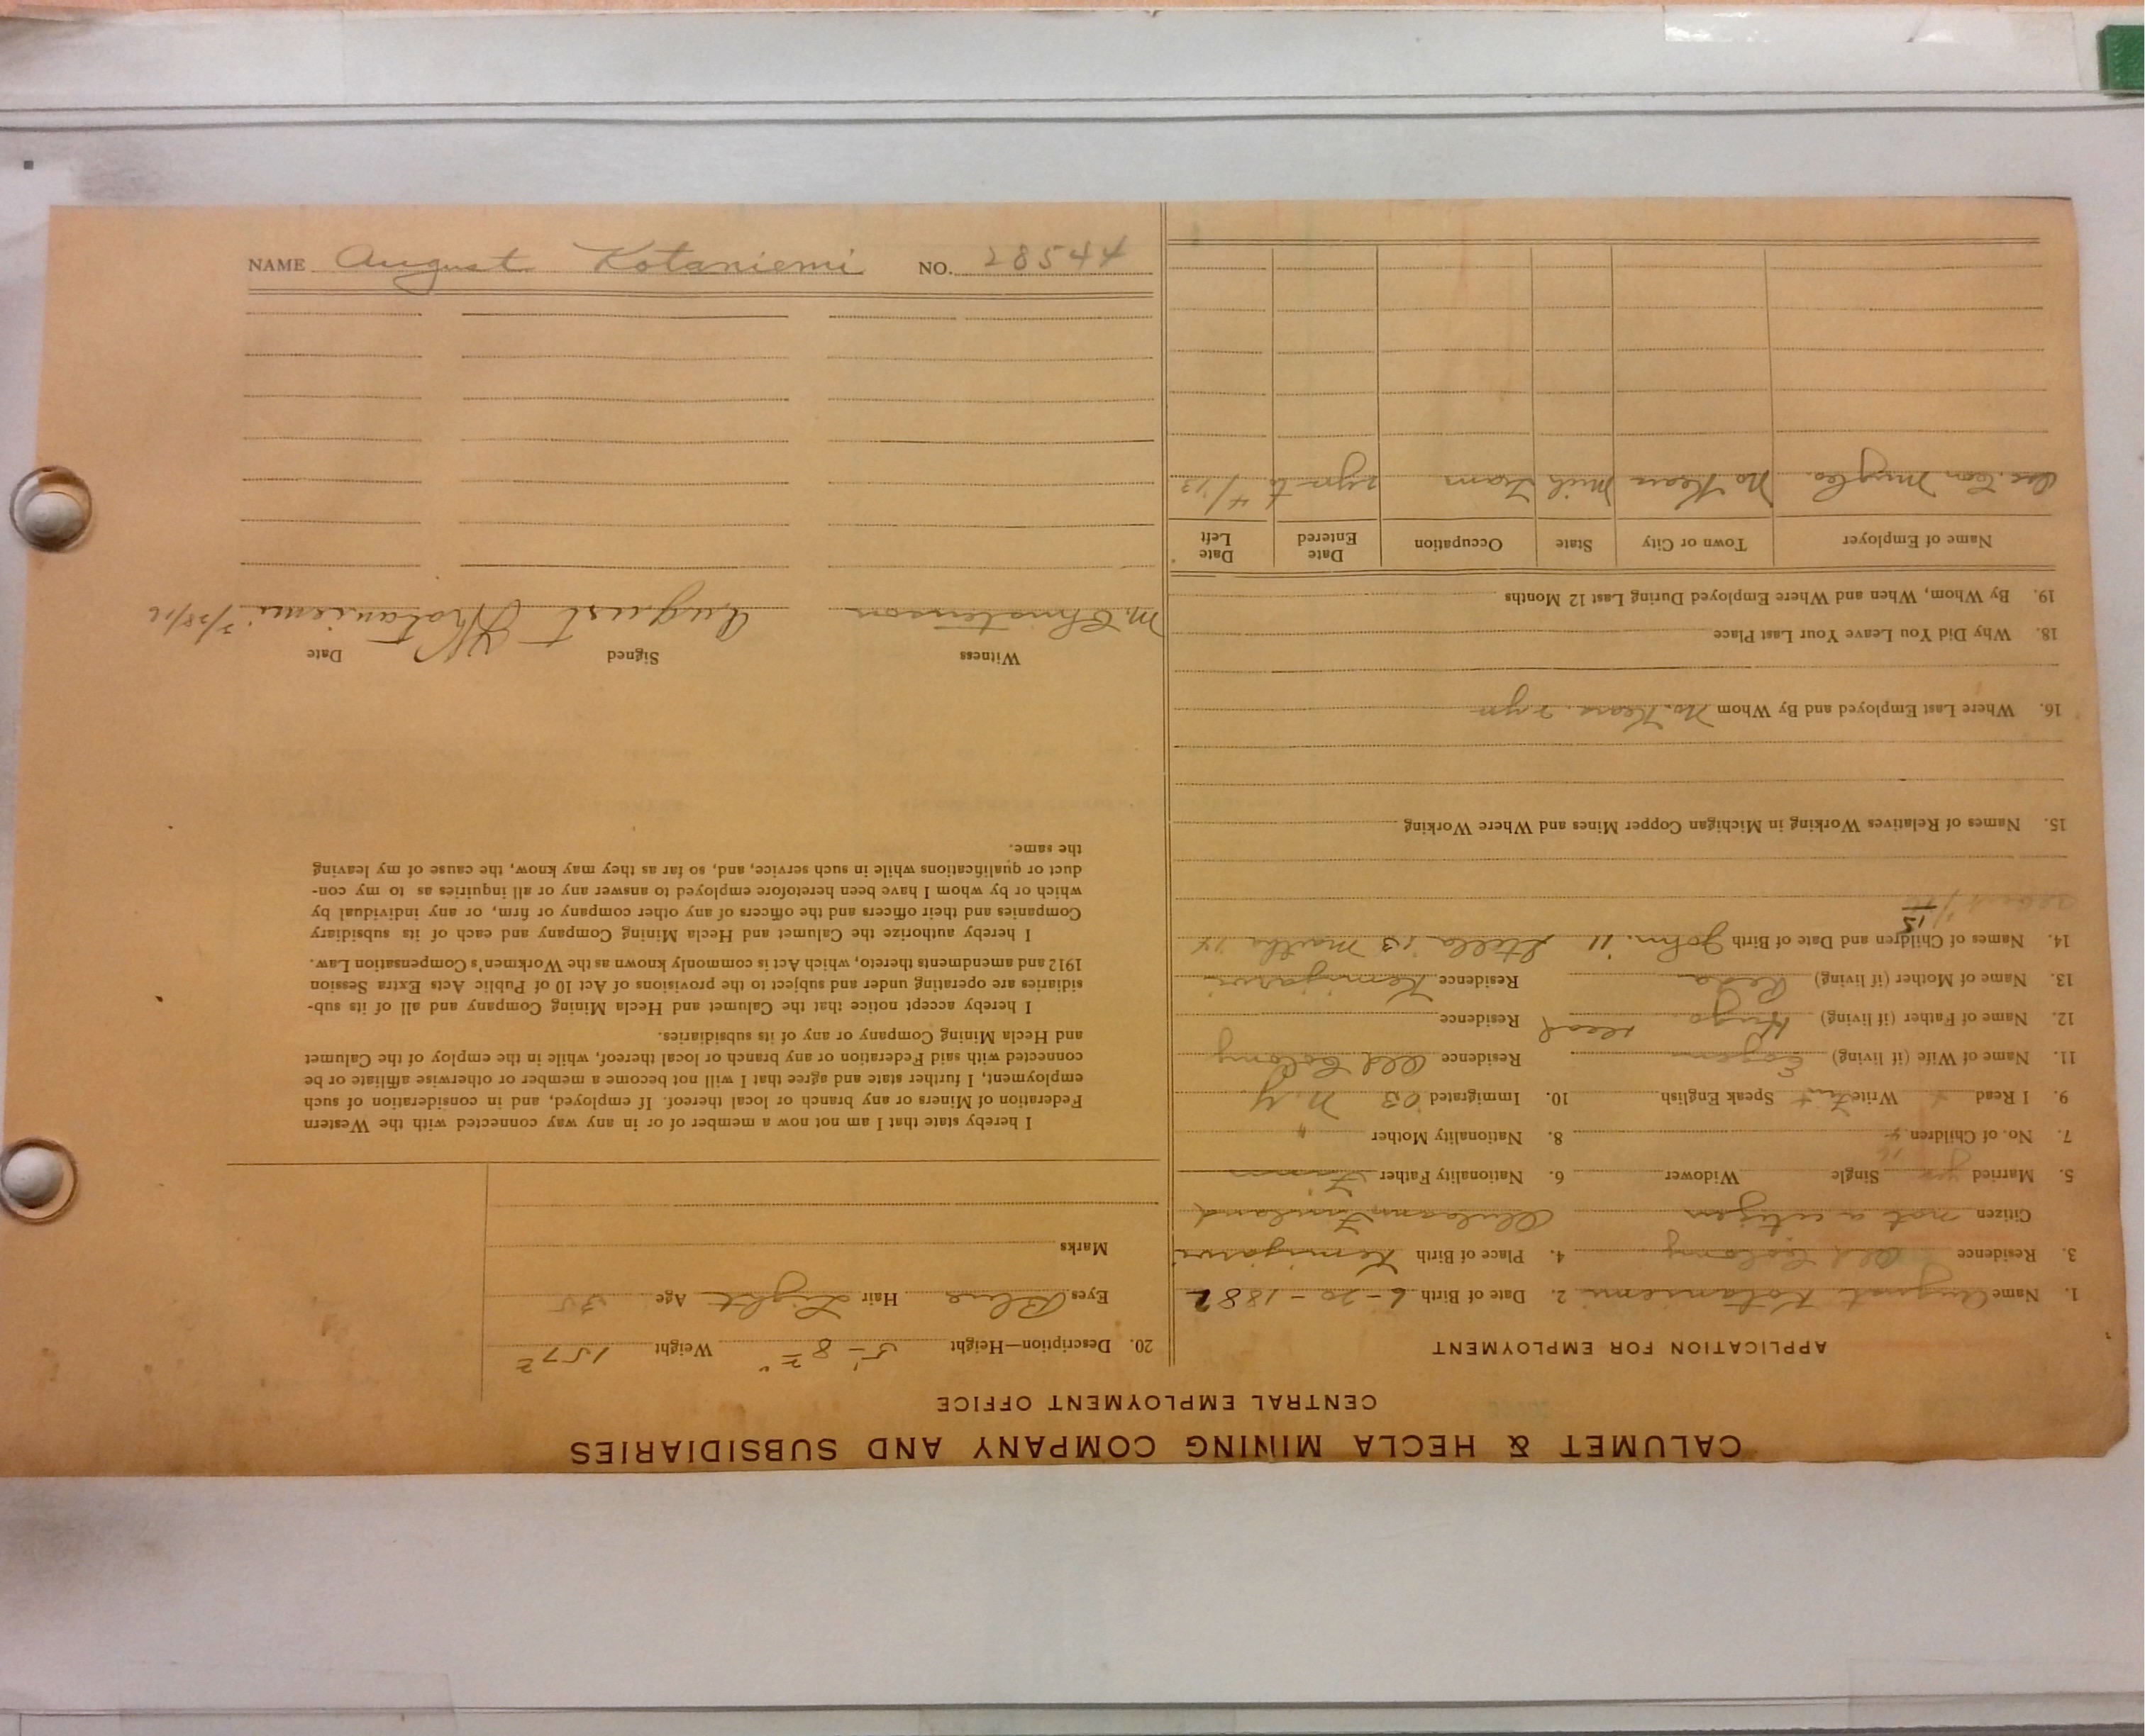 NAME August Kotaniemi NO. 28544
CALUMET & HECLA MINING COMPANY AND SUBSIDIARIES
CENTRAL EMPLOYMENT OFFICE
APPLICATION FOR EMPLOYMENT
1. Name August Kotaniemi 2. Date of Birth 6-20-1882
3. Residence Old Colony 4. Place of Birth Kemijarvi
Citizen not a citizen Finland
5. Married yes Single Widower 6. Nationality Father Finn
7. No. of Children 4 8. Nationality Mother "
9. I Read Write Speak English 10. Immigrated 03 N.Y
11. Name of Wife (if living) Residence Old Colony
12. Name of Father (if living) Hugo dead Residence
13. Name of Mother (if living) Residence Kemijarvi
14. Names of Children and Date of Birth John '11 '13 Martha 14
15
15. Names of Relatives Working in Michigan Copper Mines and Where Working
16. Where Last Employed and By Whom No. Kear. 2 yrs
18. Why Did You Leave Your Last Place
19. By Whom, When and Where Employed During Last 12 Months
Name of Employer Town or City State Occupation Date Entered Date Left
Mng Co. No Kear Mich Tram 2 yrs to 4/13
20. Description—Height 5'-8 Weight 157
Eyes Blue Hair Light Age 35
Marks
I hereby state that I am not now a member of or in any way connected with the Western
Federation of Miners or any branch or local thereof. If employed, and in consideration of such
employment, I further state and agree that I will not become a member or otherwise affiliate or be
connected with said Federation or any branch or local thereof, while in the employ of the Calumet
and Hecla Mining Company or any of its subsidiaries.
I hereby accept notice that the Calumet and Hecla Mining Company and all of its sub-
sidiaries are operating under and subject to the provisions of Act 10 of Public Acts Extra Session
1912 and amendments thereto, which Act is commonly known as the Workmen's Compensation Law.
I hereby authorize the Calumet and Hecla Mining Company and each of its subsidiary
Companies and their officers and the officers of any other company or firm, or any individual by
which or by whom I have been heretofore employed to answer any or all inquiries as to my con-
duct or qualifications while in such service, and, so far as they may know, the cause of my leaving
the same.
Witness Signed Date
M. Christenson August Kotaniemi